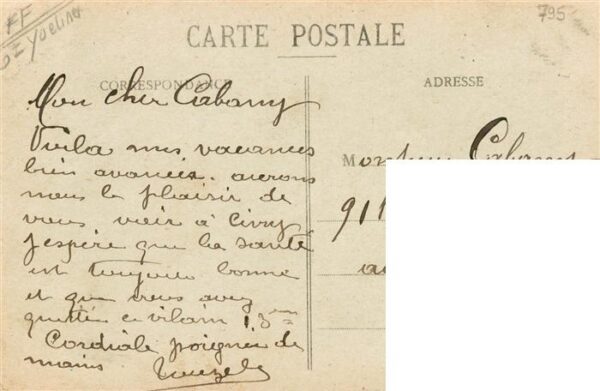 FF
Yveline
795
CARTE POSTALE
CORRESPONDANCE
ADRESSE
Mon cher Cabany
Voila mes vacances
bien avancées. aurons
nous le plaisir de
vous voir à Civry
J'espère que la santé
est toujours bonne
et que vous avez
quitté ce vilain
Cordiale poignée de
mains
Monsieur Cabany
911